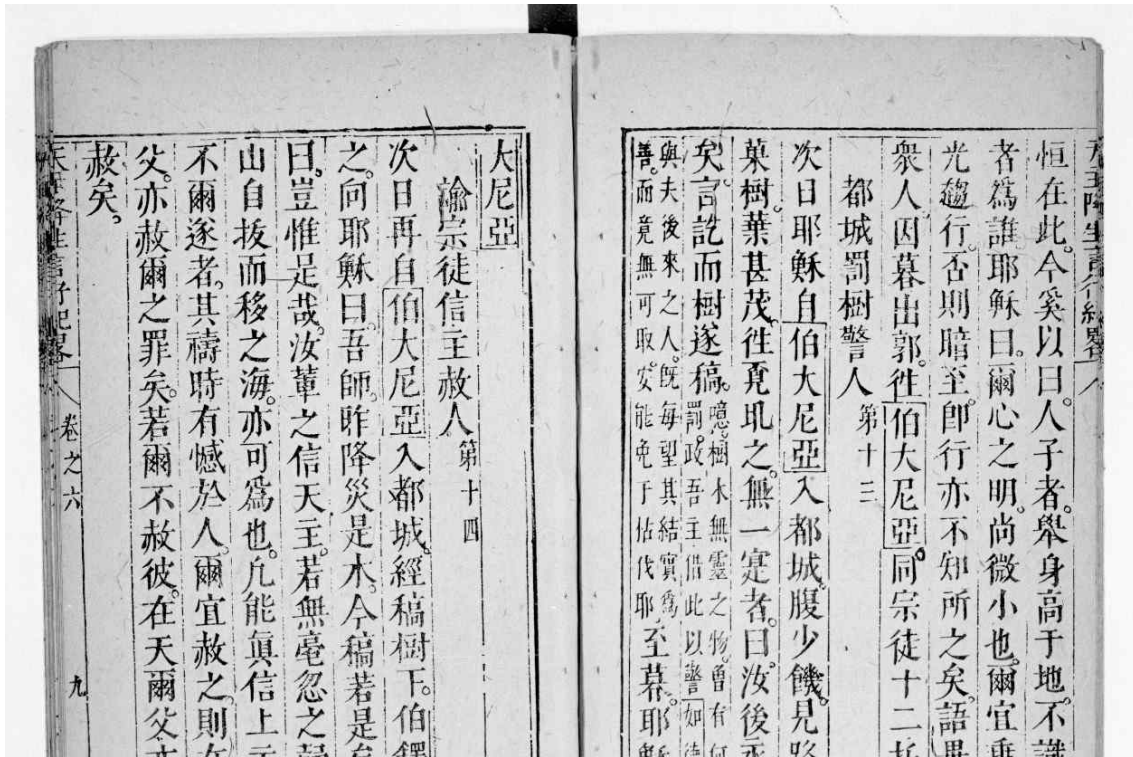 天主降生言行紀畧 八
恒在此。今奚以曰。人子者。舉身高于地。不識
者爲誰。耶穌曰。爾心之明。尚微小也。爾宜乗
光趨行。否則暗至。卽行亦不知所之矣。語畢
衆人。因暮出郭。徃伯大尼亞。同宗徒十二
都城罰樹警人 第十三
次日耶穌自伯大尼亞入都城。腹少饑。見路
菓樹。葉甚茂。徃覔之。無一寔者。曰。汝後永
矣。言訖而樹遂稿。噫。樹木無靈之物。曾有何
罰。政吾主借此以警如德
與夫後來之人。旣每望其結實爲
善。而竟無可取。安能免于估伐耶 至暮。耶穌
大尼亞
諭宗徒信主赦人 第十四
次日再自伯大尼亞入都城。經稿樹下。伯鐸
之。向耶穌曰。吾師。昨降災是木。今稿若是矣
曰。豈惟足哉。汝輩之信天主。若無毫忽之疑
山自拔而移之海。亦可爲也。凢能眞信上主
不爾遂者。其禱時有憾於人。爾宜赦之。則在
父。亦赦爾之罪矣。若爾不赦彼。在天爾父亦
赦矣。
天主降生言行紀畧 卷之六 九